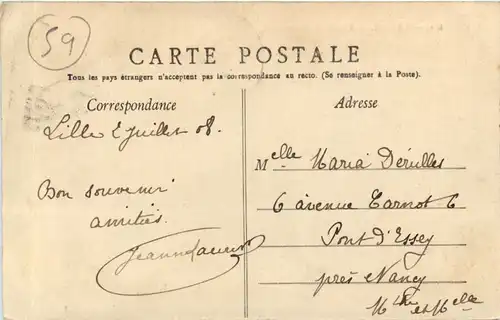 59
CARTE POSTALE
Tous les pays étrangers n'acceptent pas la correspondance au recto. (Se renseigner à la Poste).
Correspondance
Adresse
Lille 2 juillet 08.
Melle Maria Dérulles
Bon souvenir
6 avenue Carnot 6
amitiés.
Pont d'Essey
près Nancy
Mthe et Mlle